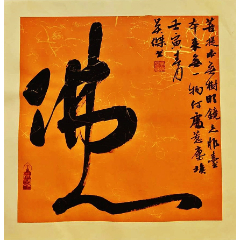 佛
菩提本無樹明鏡亦非臺
本來無一物何處惹塵埃
壬寅春月